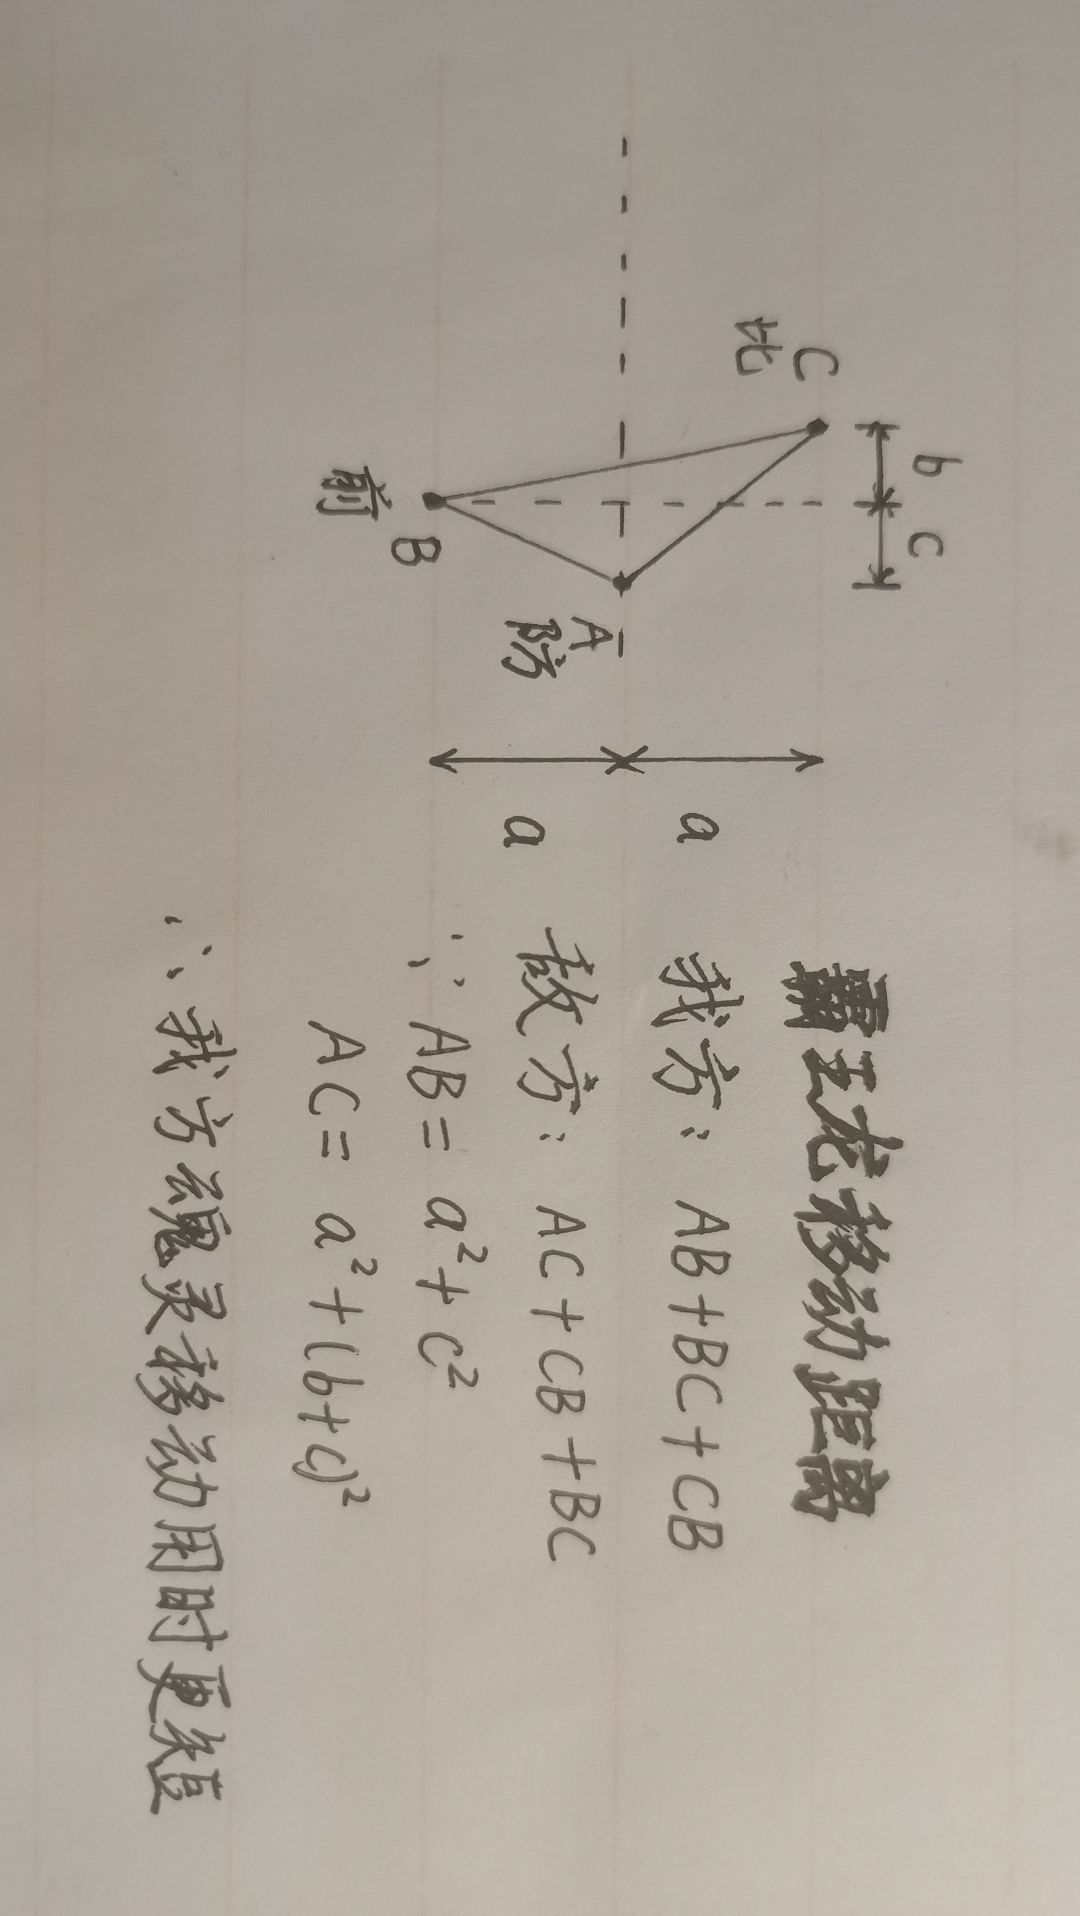 霸王龙移动距离
我方: AB+BC+CB
敌方: AC+CB+BC
∵ AB= a²+c²
AC= a²+(b+c)²
∴ 我方魂灵移动用时更短
b
c
C
比
A
防
B
前
a
a